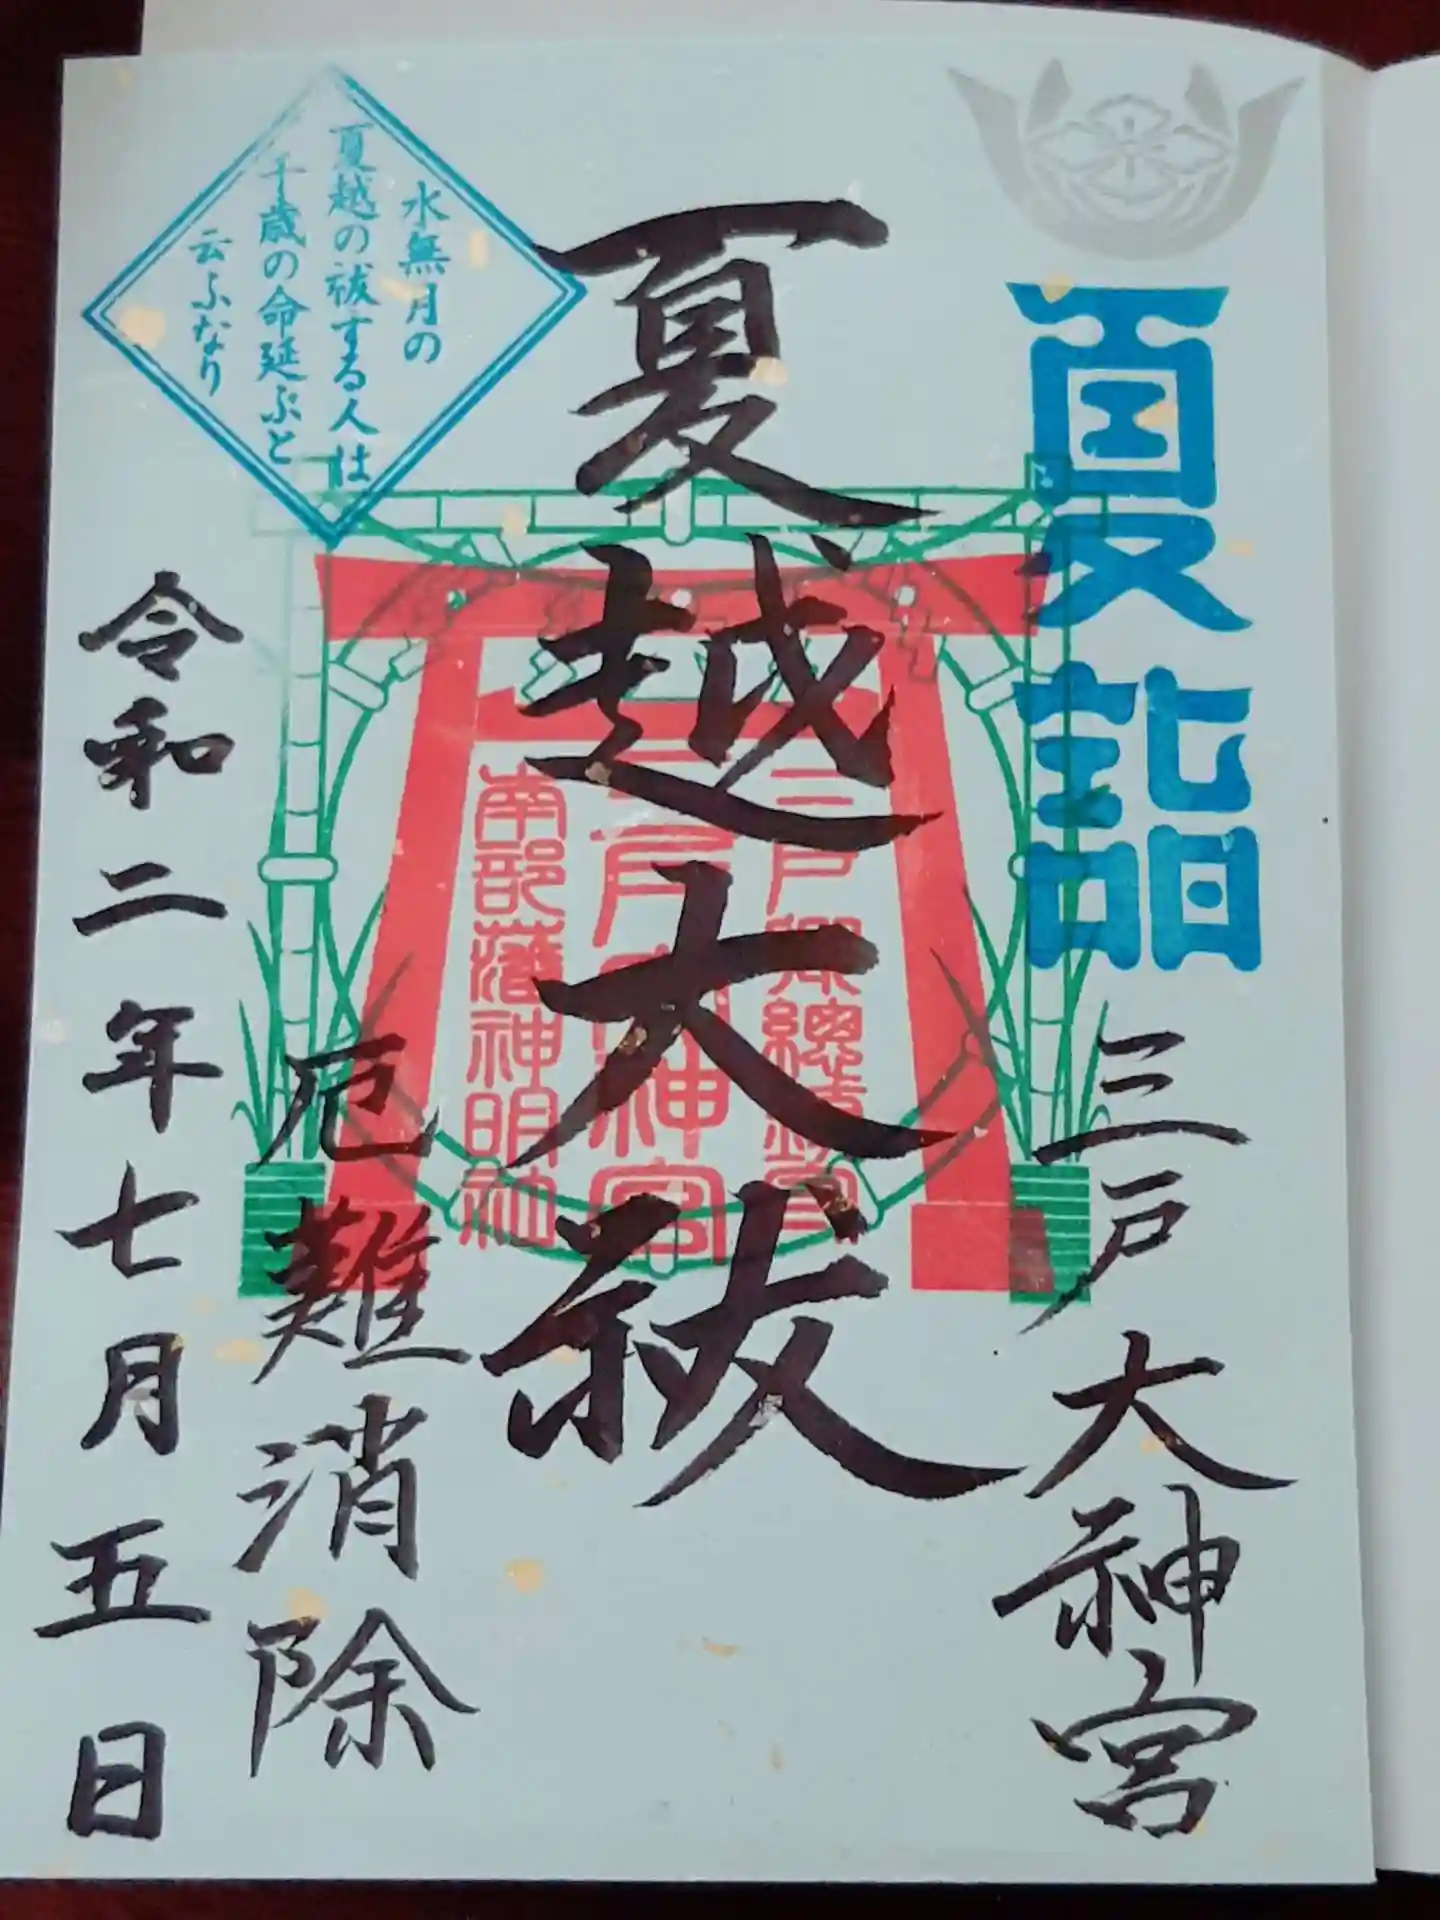 夏詣
三戸大神宮
夏越大祓
水無月の
夏越の祓する人は
千歳の命延ぶと
云ふなり
三戸郷總鎮守
三戸大神宮
南部藩神明社
厄難消除
令和二年七月五日